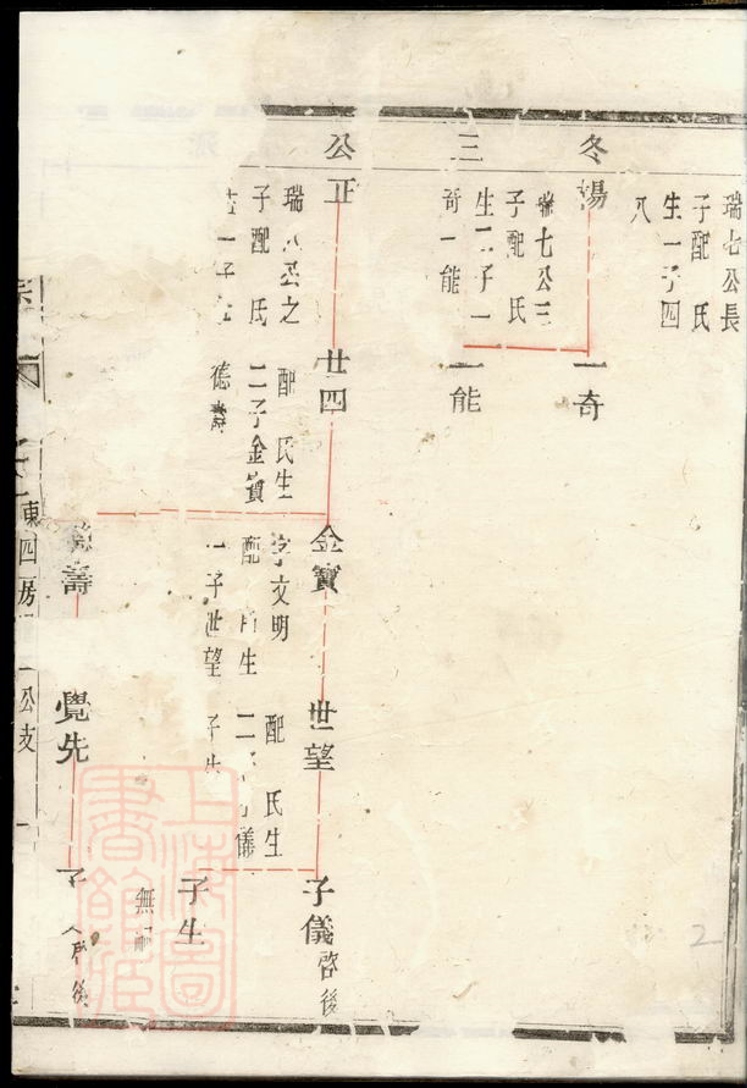 瑞七公長
子配 氏
生一子四
八
冬陽
瑞七公三
子配 氏
生二子一
奇一能
一奇
三
一能
公正
瑞 公之
子配 氏
一子
廿四
配 氏生
二子金寶
德壽
金寶
字文明
配 生
一子世望
世望
配 氏生
二 儀
子生
子儀 啓後
子生
無
壽
覺先
子
啓後
宗
東四房
公支
上海圖書館藏
2